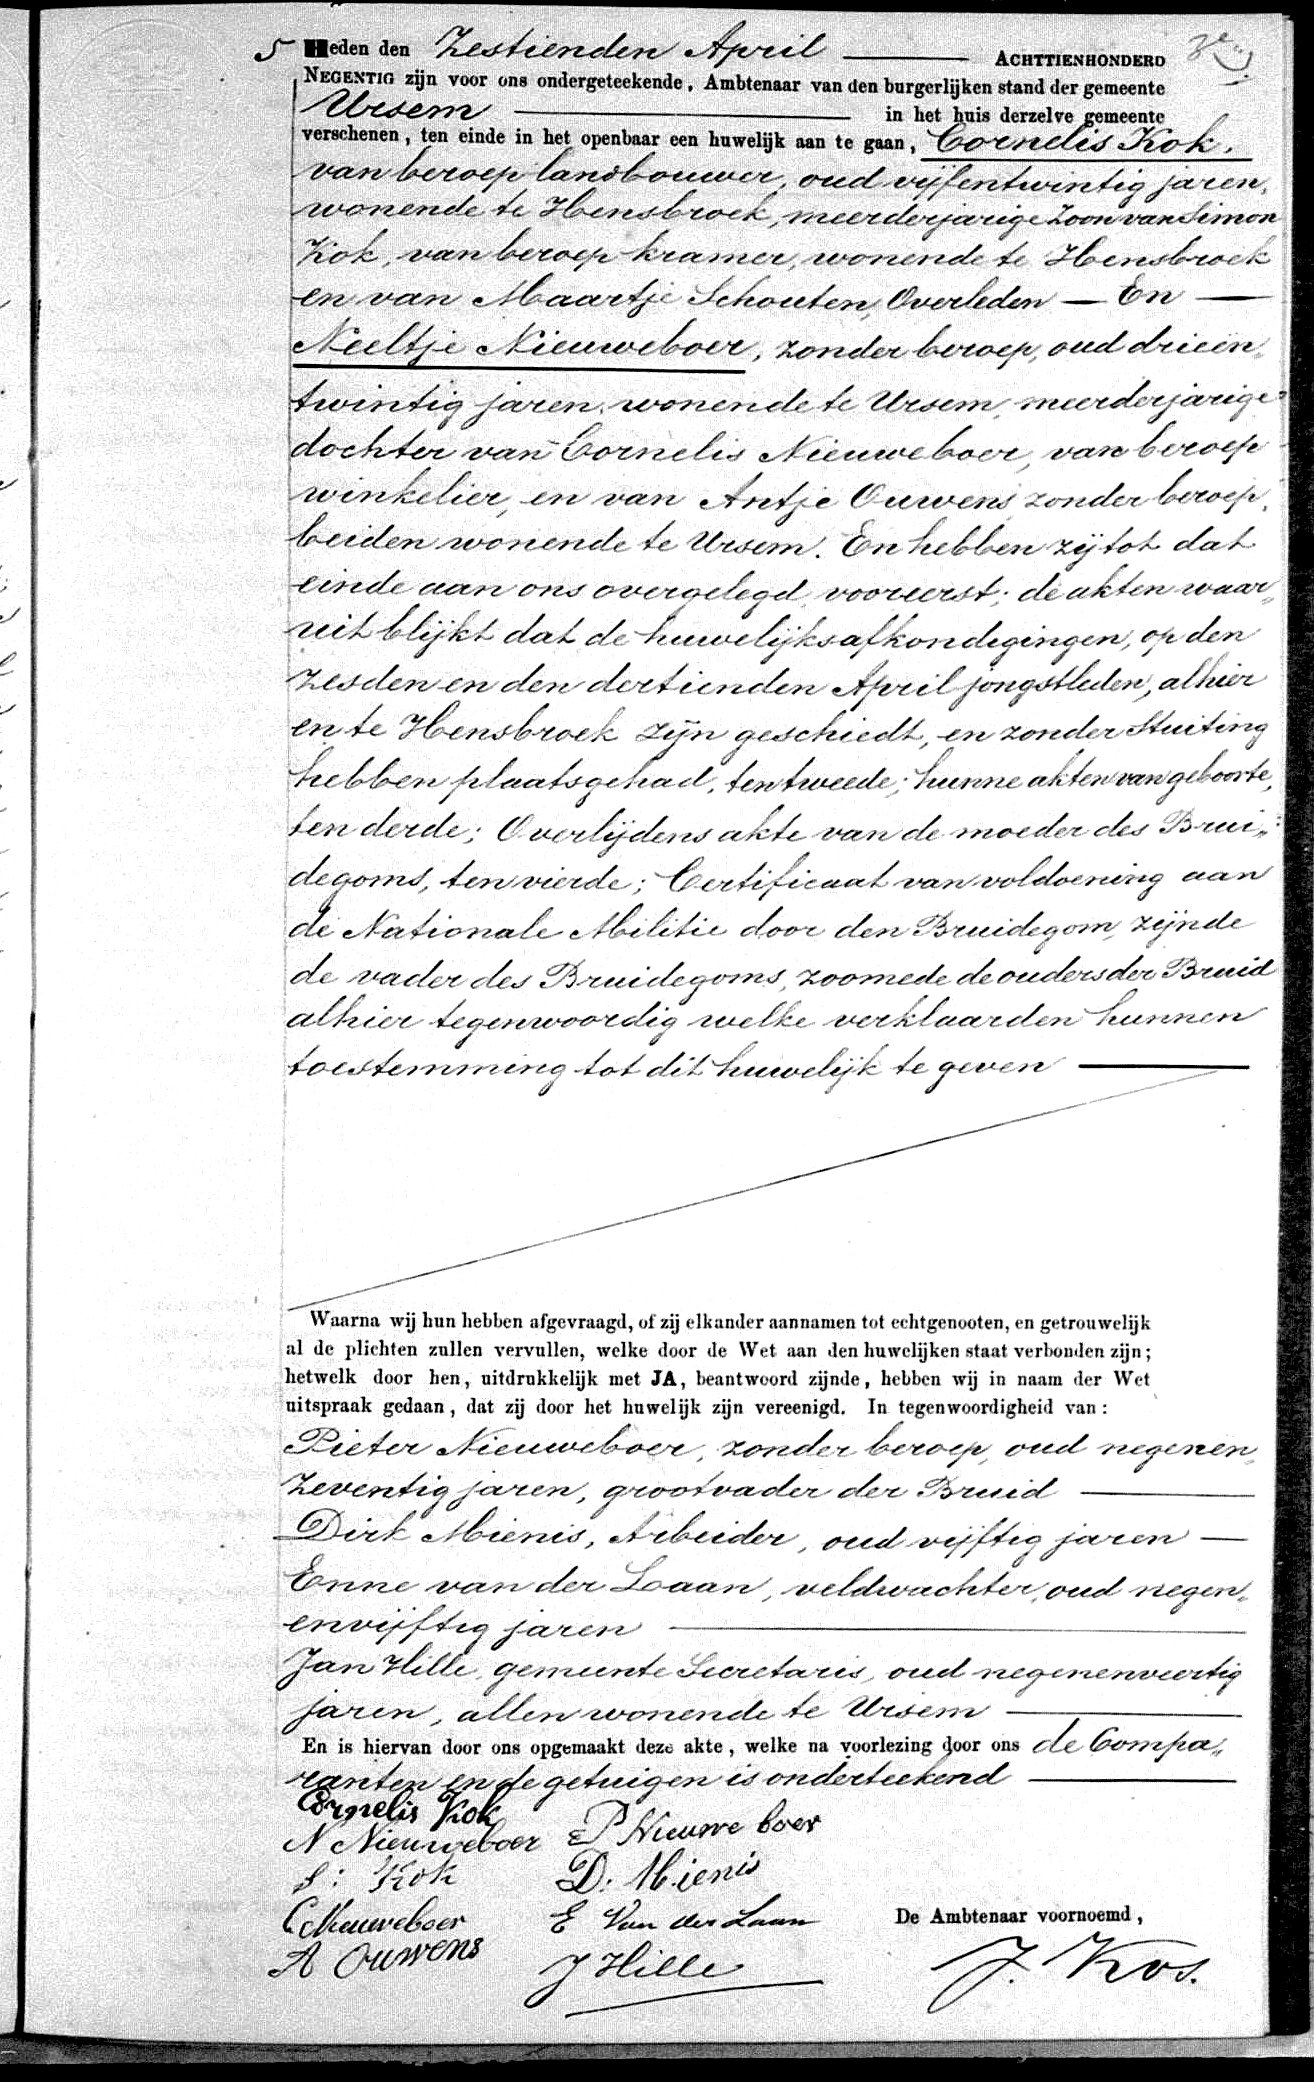 5 Heden den Zestienden April ACHTTIENHONDERD
NEGENTIG zijn voor ons ondergeteekende, Ambtenaar van den burgerlijken stand der gemeente
Ursem in het huis derzelve gemeente
verschenen, ten einde in het openbaar een huwelijk aan te gaan, Cornelis Kok,
van beroep landbouwer, oud vijfentwintig jaren,
wonende te Hensbroek, meerderjarige Zoon van Simon
Kok, van beroep kramer, wonende te Hensbroek
en van Maartje Schouten, Overleden — En —
Neeltje Nieuweboer, zonder beroep, oud drieën„
twintig jaren, wonende te Ursem, meerderjarige
dochter van Cornelis Nieuweboer, van beroep
winkelier, en van Antje Ouwens zonder beroep,
beiden wonende te Ursem. En hebben zij tot dat
einde aan ons overgelegd, vooreerst; de akten waar„
uit blijkt dat de huwelijksafkondigingen, op den
zesden en den dertienden April jongstleden, alhier
en te Hensbroek zijn geschiedt, en zonder Stuiting
hebben plaatsgehad, ten tweede; hunne akten van geboorte,
ten derde; Overlijdens akte van de moeder des Brui„
degoms, ten vierde; Certificaat van voldoening aan
de Nationale Militie door den Bruidegom, zijnde
de vader des Bruidegoms, zoomede de ouders der Bruid
alhier tegenwoordig welke verklaarden hunnen
toestemming tot dit huwelijk te geven —
Waarna wij hun hebben afgevraagd, of zij elkander aannamen tot echtgenooten, en getrouwelijk
al de plichten zullen vervullen, welke door de Wet aan den huwelijken staat verbonden zijn;
hetwelk door hen, uitdrukkelijk met JA, beantwoord zijnde, hebben wij in naam der Wet
uitspraak gedaan, dat zij door het huwelijk zijn vereenigd. In tegenwoordigheid van:
Pieter Nieuweboer, zonder beroep, oud negenen„
zeventig jaren, grootvader der Bruid —
Dirk Mienis, Arbeider, oud vijftig jaren —
Enne van der Laan, veldwachter, oud negen„
envijftig jaren —
Jan Hille, gemeente Secretaris, oud negenenveertig
jaren, allen wonende te Ursem —
En is hiervan door ons opgemaakt deze akte, welke na voorlezing door ons de Compa„
ranten en de getuigen is onderteekend —
Cornelis Kok
N Nieuweboer P Nieuwe boer
S: Kok D. Mienis
C Nieuweboer E Van der Laan De Ambtenaar voornoemd,
A Ouwens J Hille J. Kos.